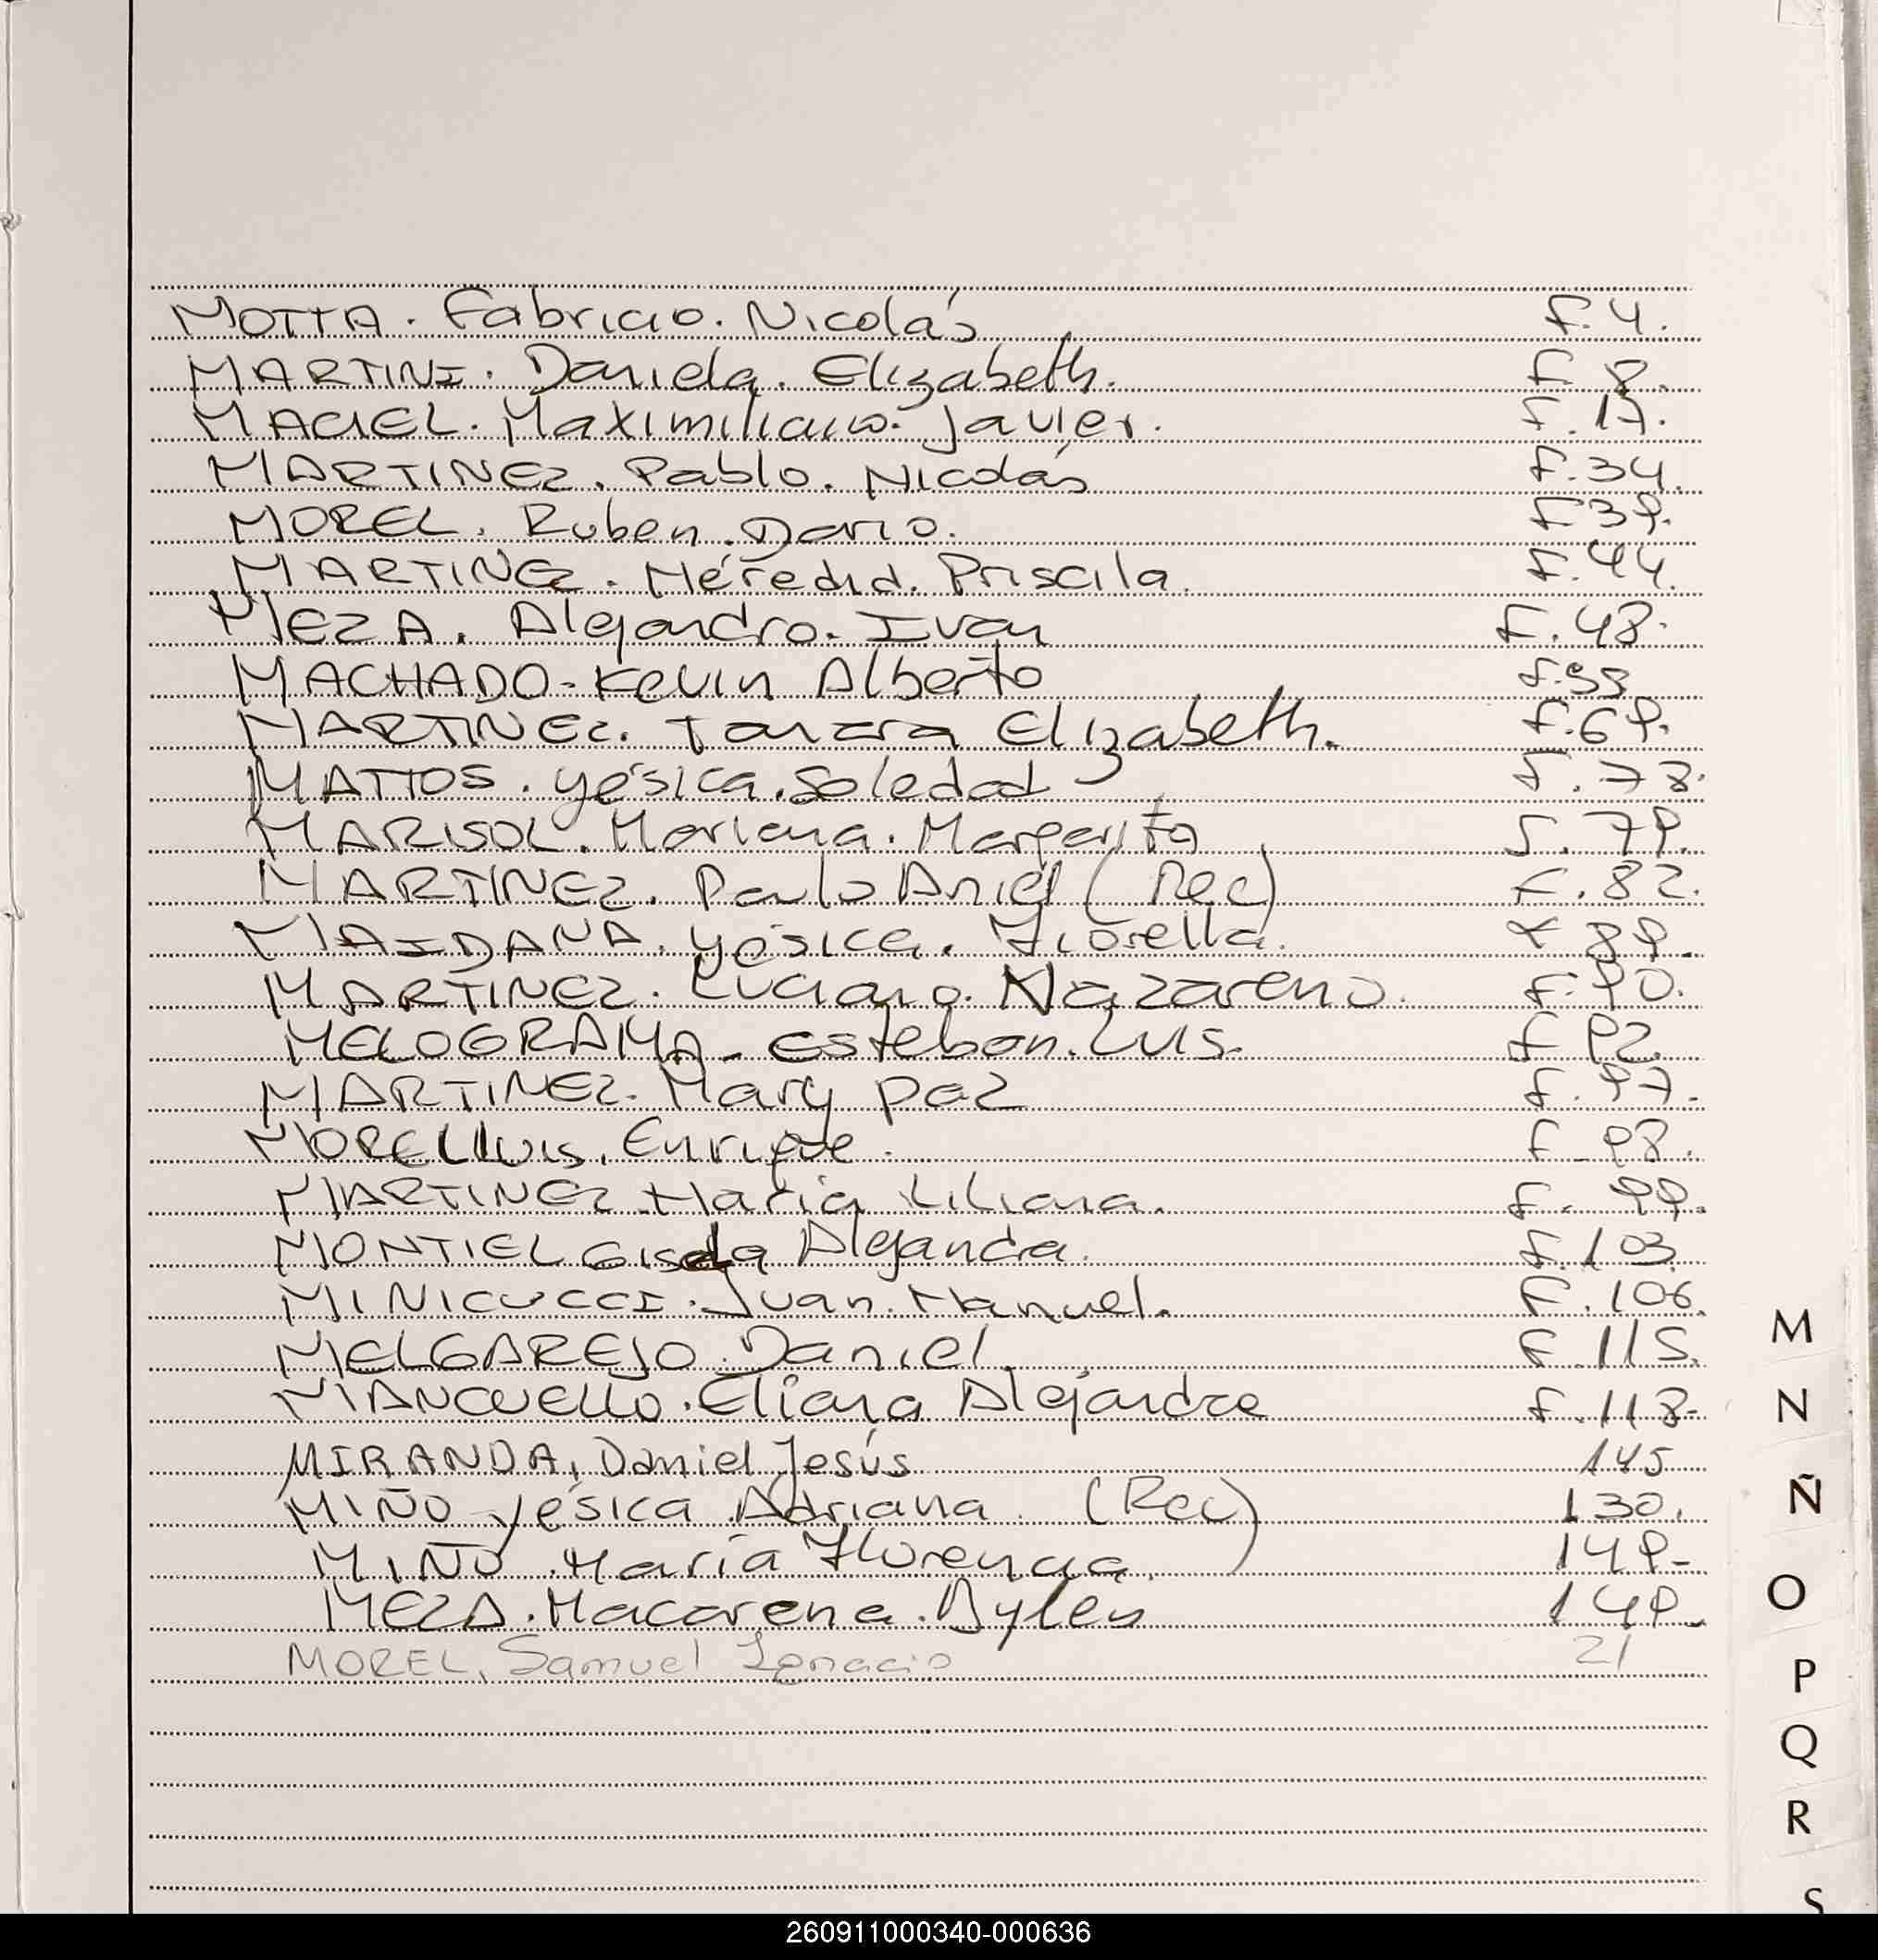 MOTTA. Fabricio. Nicolás f. 4.
MARTINI. Daniela. Elizabeth. f 8.
MACIEL. Maximiliano. Javier. f. 17.
MARTINEZ. Pablo. Nicolás f. 34.
MOREL. Ruben. Dario. f 39.
MARTINEZ. Héredid. Priscila. f. 44.
MEZA. Alejandro. Ivan f. 48.
MACHADO - Kevin Alberto f.
MARTINEZ. Elizabeth. f. 69.
MATTOS. Yésica. Soledad f. 78.
MARISOL. Mariana. Margarita f. 79.
MARTINEZ. Paulo Ariel (Rec) f. 82.
MAIDANA. Yésica. Fiorella. f 89.
MARTINEZ. Luciano. Nazareno. f. 90.
MELOGRAMA - Esteban. Luis. f 92.
MARTINEZ. Mary paz f. 97.
MOREL Luis. Enrique. f - 98.
MARTINEZ María Liliana. f. 99.
MONTIEL Gisela Alejandra. f. 103.
MINICUCCI. Juan. Manuel. f. 106.
MELGAREJO. Daniel. f 115.
MANCUELLO. Eliana Alejandra f. 118-
MIRANDA, Daniel Jesús 145
MIÑO Yésica Adriana (Rec) 130.
MIÑO María Florencia. 149-
MEZA. Macarena. Aylen 149-
MOREL, Samuel Ignacio 21
M
N
Ñ
O
P
Q
R
S
260911000340-000636